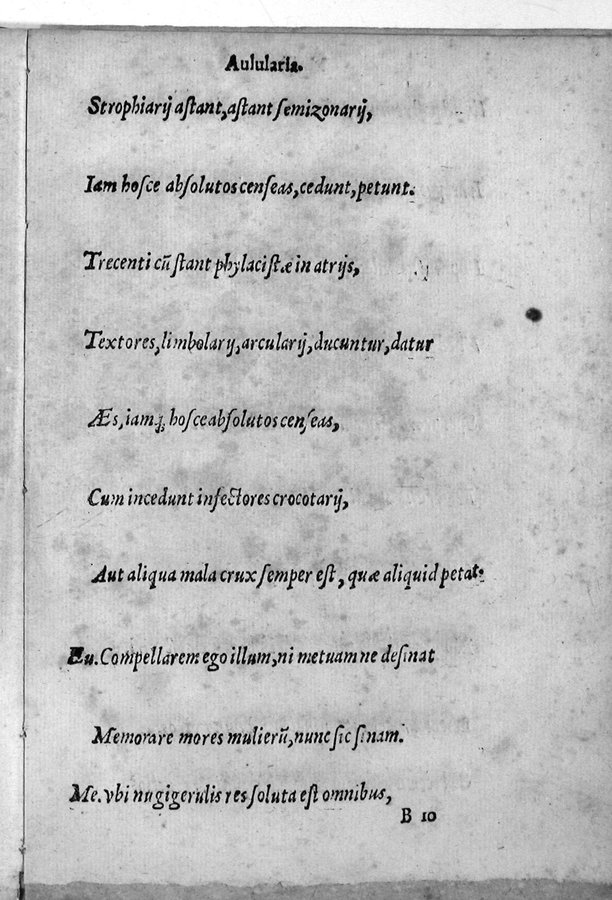 Aulularia.
Strophiarij aſtant, aſtant ſemizonarij,
Iam hoſce abſolutos cenſeas, cedunt, petunt.
Trecenti cũ ſtant phylaciſtæ in atrijs,
Textores, limbolarij, arcularij, ducuntur, datur
Æs, iamꝗ́; hoſce abſolutos cenſeas,
Cum incedunt infectores crocotarij,
Aut aliqua mala crux ſemper eſt, quæ aliquid petat.
Eu. Compellarem ego illum, ni metuam ne deſinat
Memorare mores mulierũ, nunc ſic ſinam.
Me. vbi nugigerulis res ſoluta eſt omnibus,
B 10